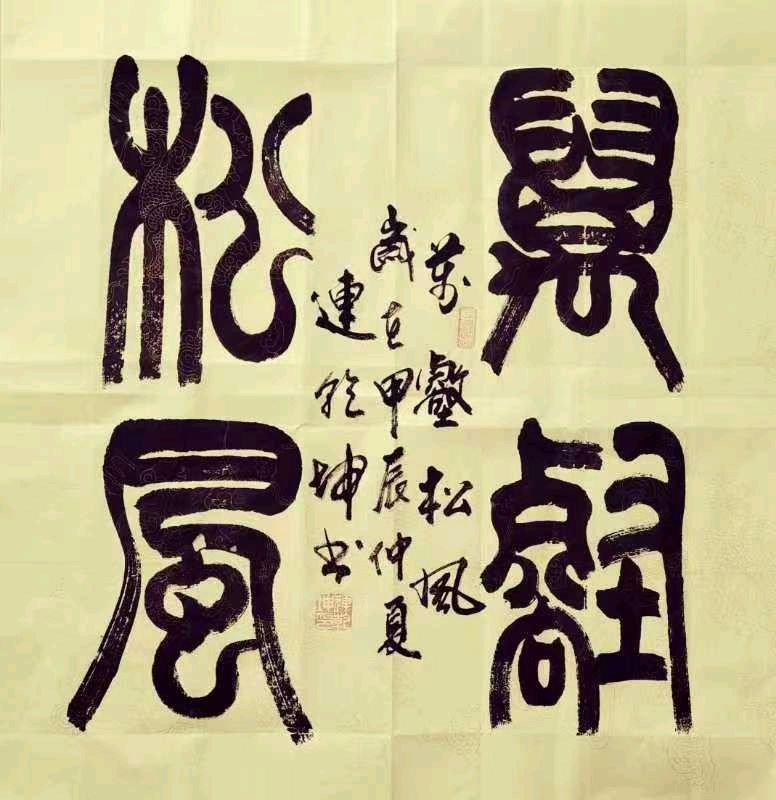 萬壑
松風
萬壑松風
歲在甲辰仲夏
連乾坤書